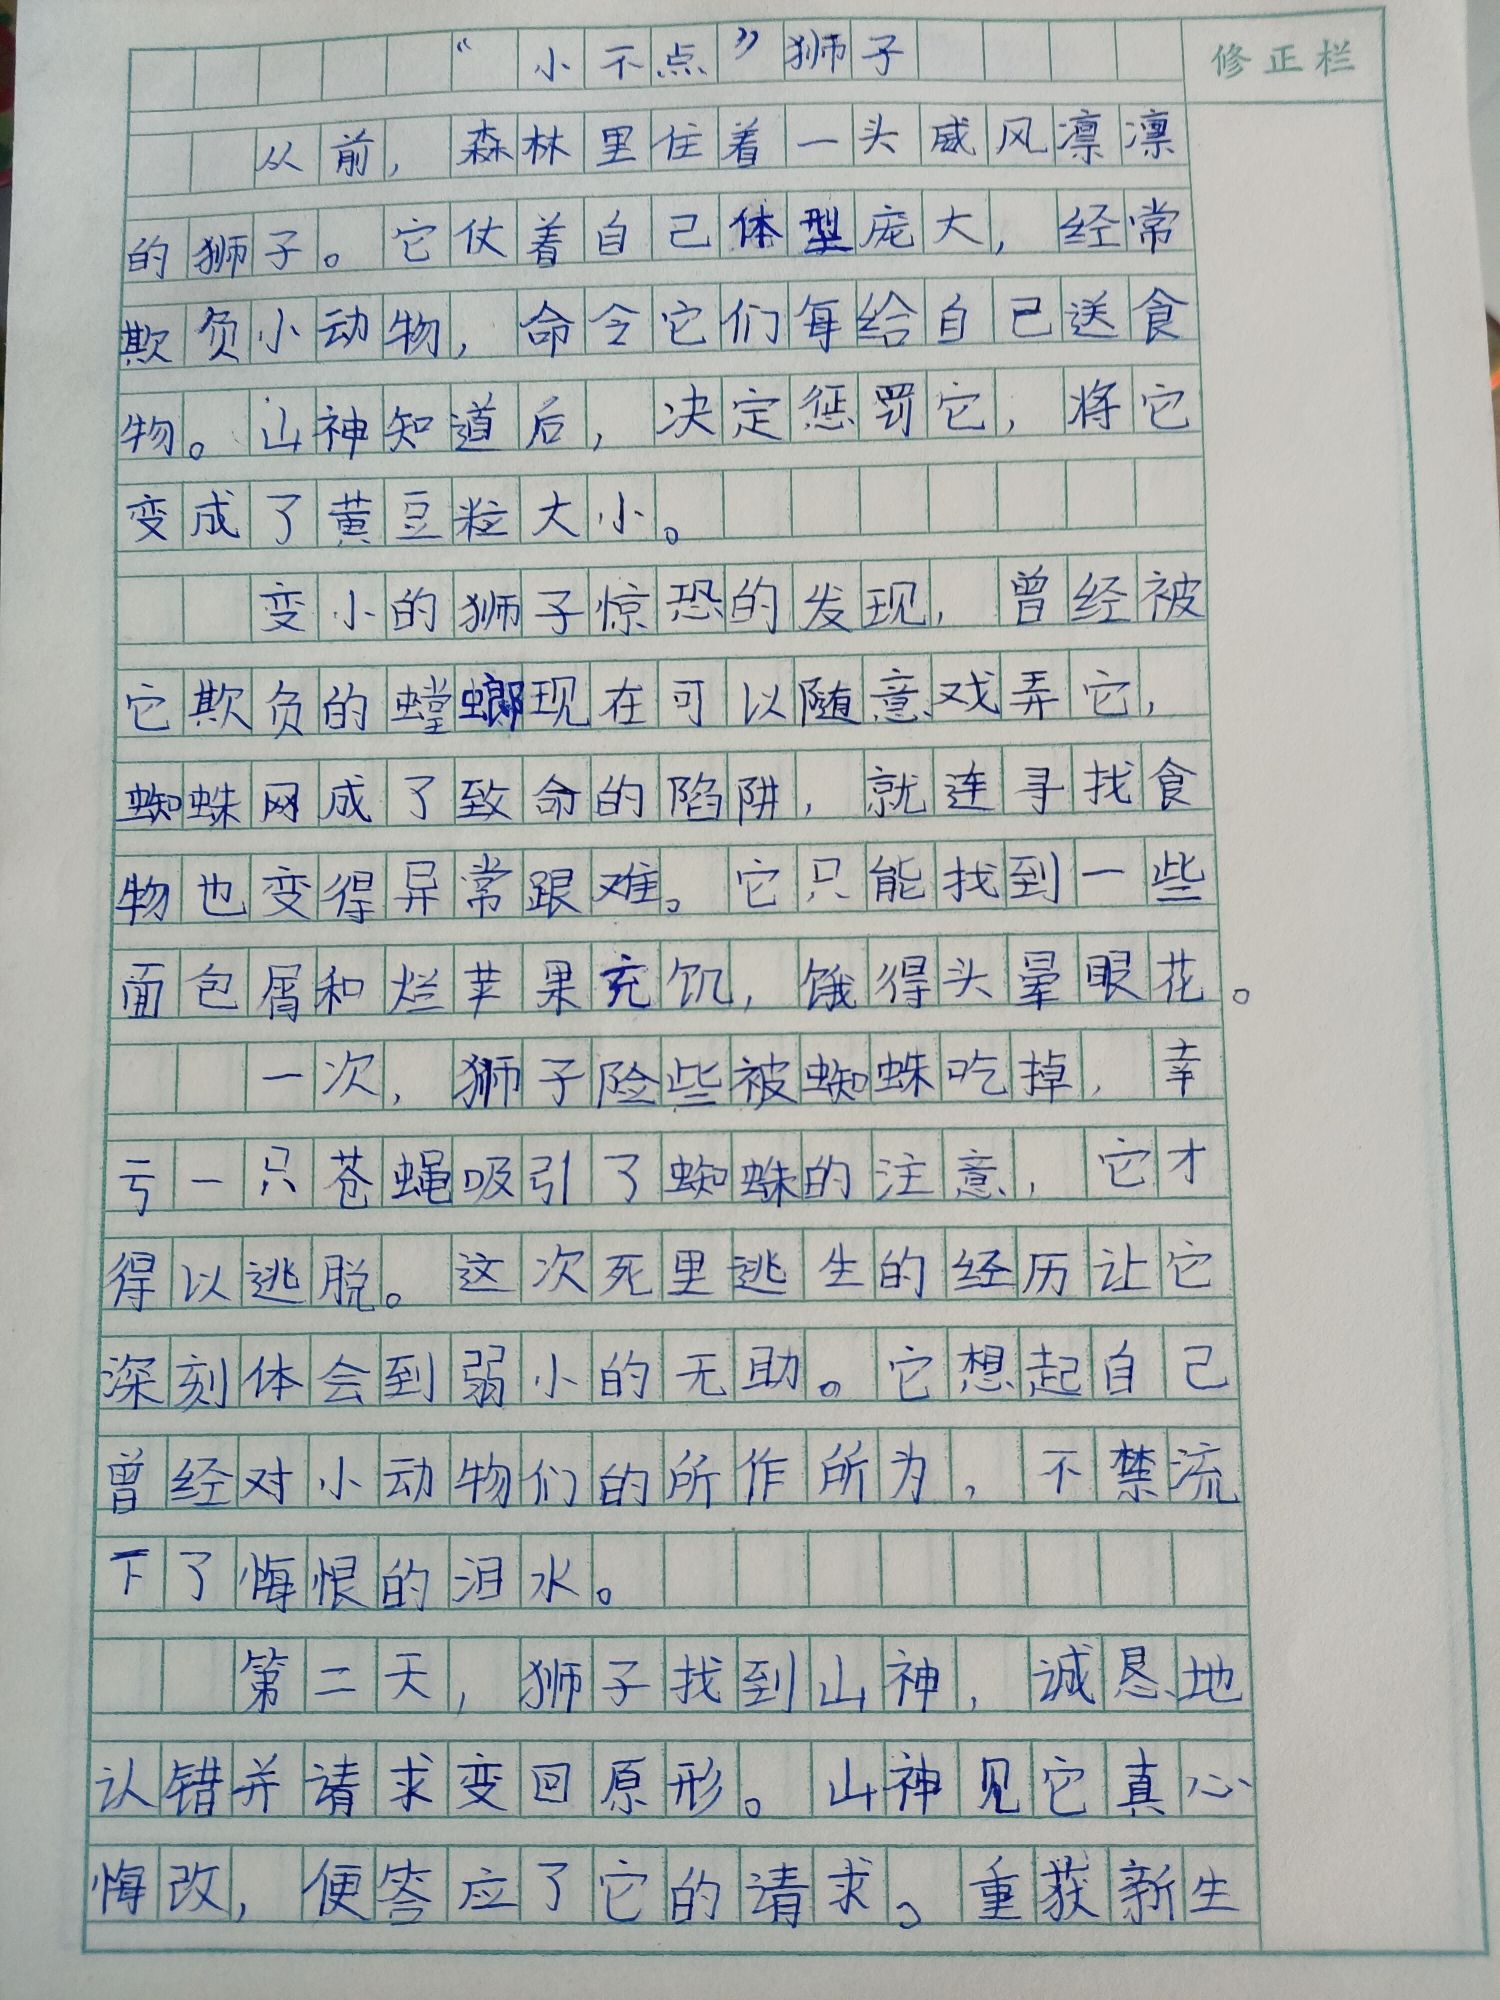 “小不点”狮子
修正栏
从前，森林里住着一头威风凛凛
的狮子。它仗着自己体型庞大，经常
欺负小动物，命令它们每给自己送食
物。山神知道后，决定惩罚它，将它
变成了黄豆粒大小。
变小的狮子惊恐的发现，曾经被
它欺负的螳螂现在可以随意戏弄它，
蜘蛛网成了致命的陷阱，就连寻找食
物也变得异常跟难。它只能找到一些
面包屑和烂苹果充饥，饿得头晕眼花。
一次，狮子险些被蜘蛛吃掉，幸
亏一只苍蝇吸引了蜘蛛的注意，它才
得以逃脱。这次死里逃生的经历让它
深刻体会到弱小的无助。它想起自己
曾经对小动物们的所作所为，不禁流
下了悔恨的泪水。
第二天，狮子找到山神，诚恳地
认错并请求变回原形。山神见它真心
悔改，便答应了它的请求。重获新生